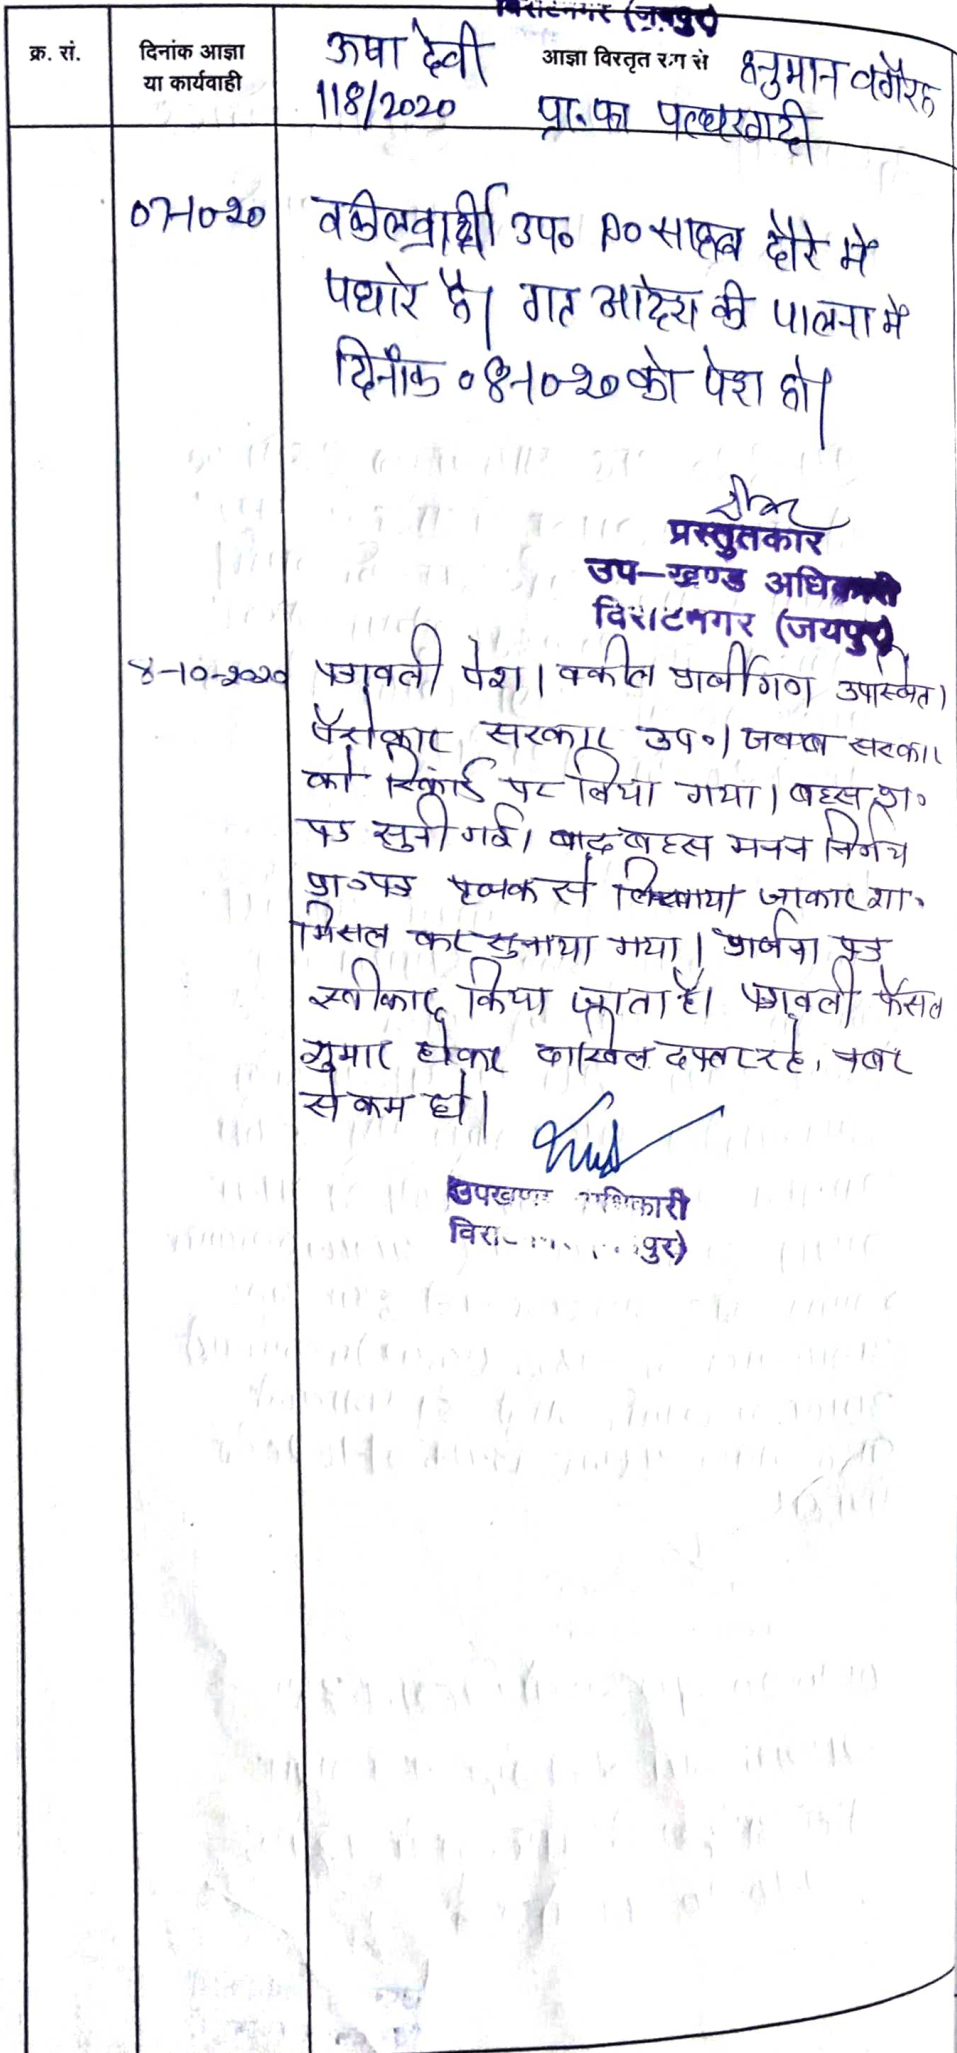 विराटनगर (जयपुर)
क्र. सं. दिनांक आज्ञा ऊषा देवी आज्ञा विस्तृत रूप से हनुमान वगैरह
या कार्यवाही 118/2020 प्रा.पत्र पत्थरगढ़ी
07-10-20 वकील प्रार्थी उप० P० साहब दौरे में
पधारे है। गत आदेश की पालना में
दिनांक 08-10-20 को पेश हो।
प्रस्तुतकार
उप-खण्ड अधिकारी
विराटनगर (जयपुर)
8-10-2020 पत्रावली पेश। वकील प्रार्थीगण उपस्थित।
पैरोकार सरकार उप०। जवाब सरकार
को रिकार्ड पर लिया गया। बहस प्रा०
पत्र सुनी गई। बाद बहस मनन निर्णय
प्रा०पत्र पृथक से लिखाया जाकर शा.
मिसल कर सुनाया गया। प्रार्थना पत्र
स्वीकार किया जाता है। पत्रावली फैसल
शुमार होकर दाखिल दफ्तर रहे, नंबर
से कम हो।
उपखण्ड अधिकारी
विरा पुर)